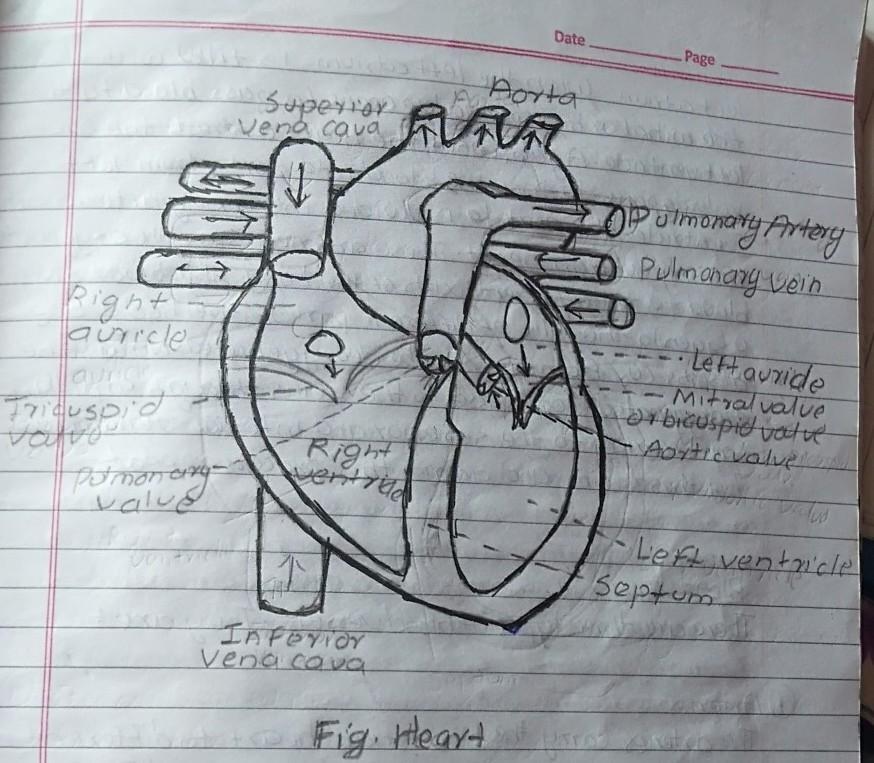 Date
Page
Aorta
Superior
vena cava
Pulmonary Artery
Pulmonary vein
Right
auricle
Left auricle
Mitral valve
or bicuspid valve
Aortic valve
Tricuspid
valve
Right
Pulmonary
valve
Left ventricle
Septum
Inferior
vena cava
Fig. Heart